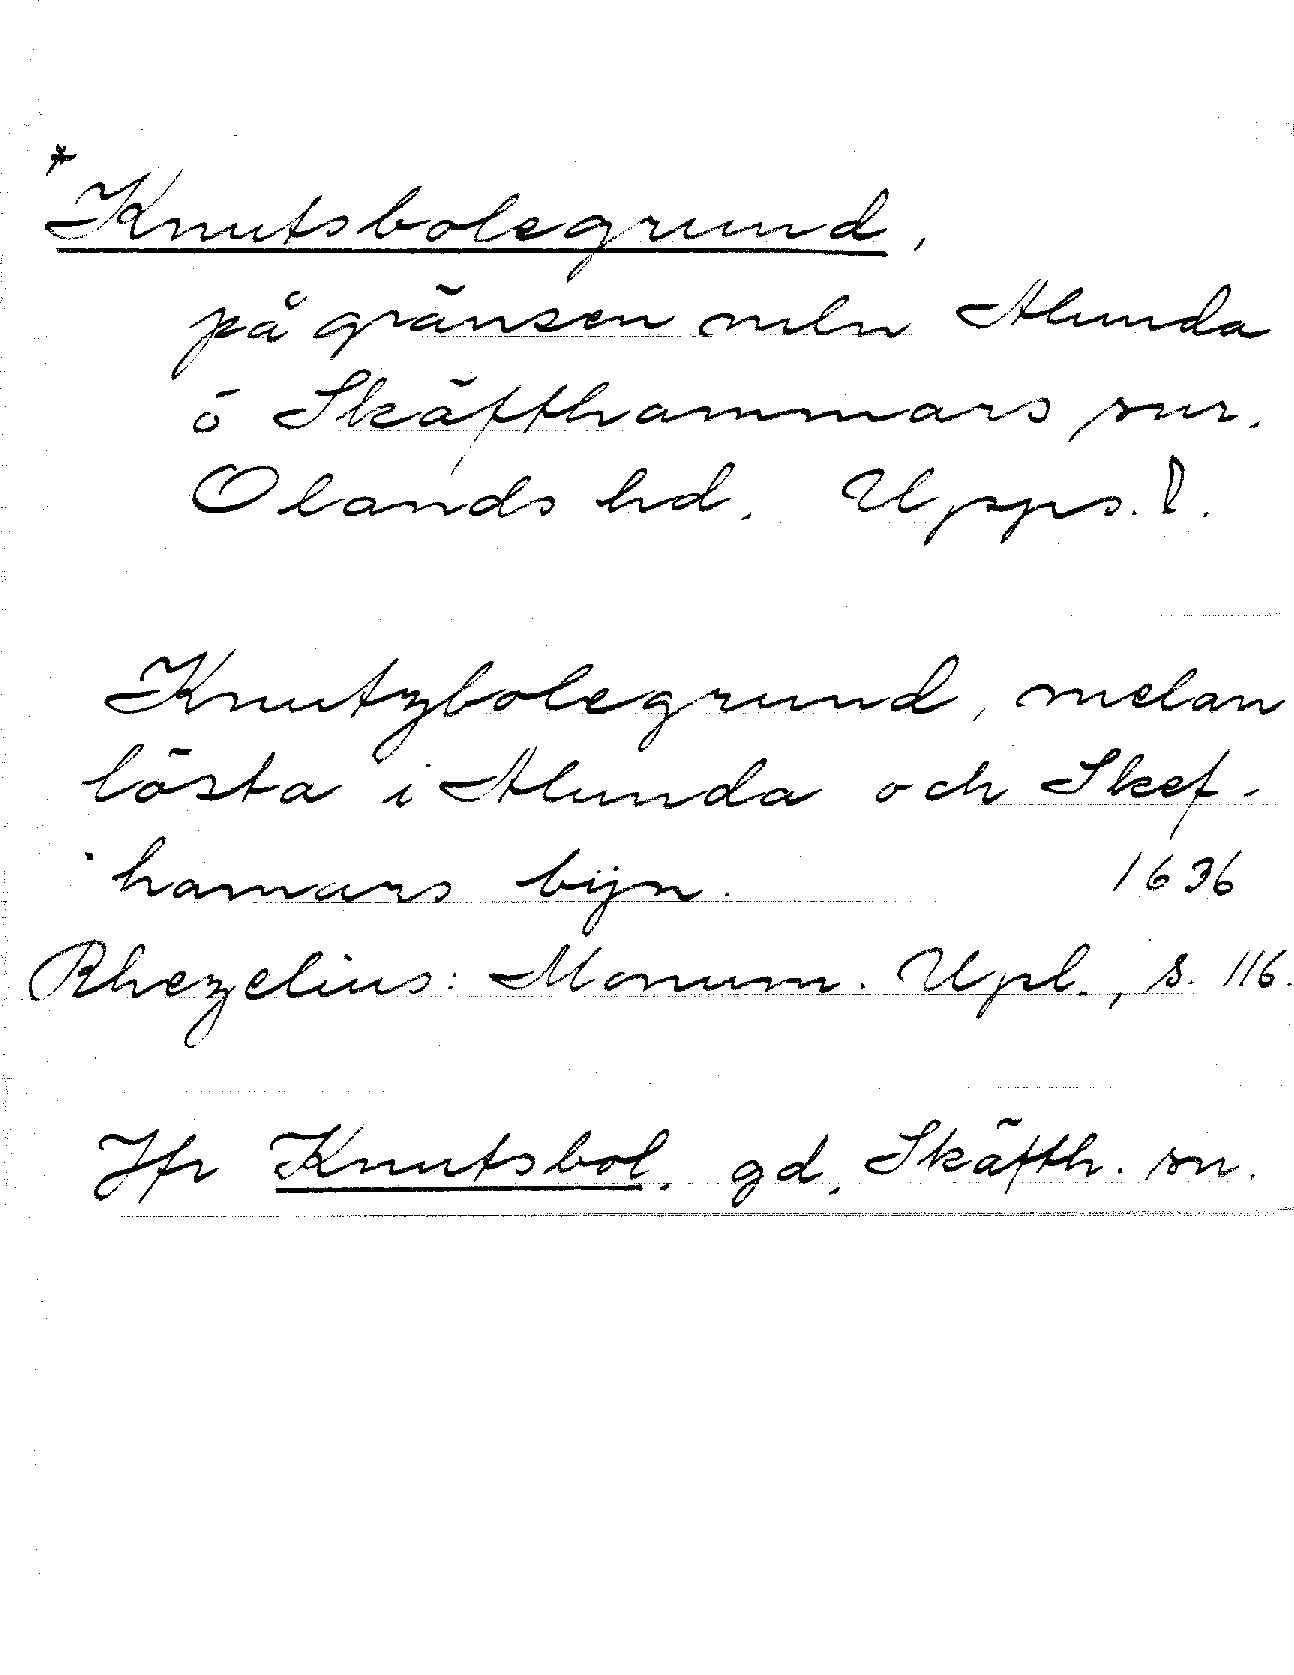 *Knutsbolegrund,
på gränsen mln Alunda
o Skäfthammars snr.
Olands hd. Upps. l.
Knutzbolegrund, melan
lösta i Alunda och Skef-
hamars bijn. 1636
Rhezelius: Monum. Upl., s. 116.
Jfr Knutsbol. gd, Skäfth. sn.